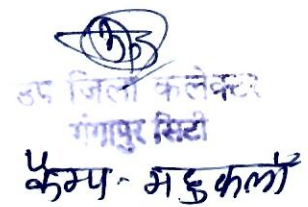 उप जिला कलेक्टर
गंगापुर सिटी
कैम्प - महुकलाँ